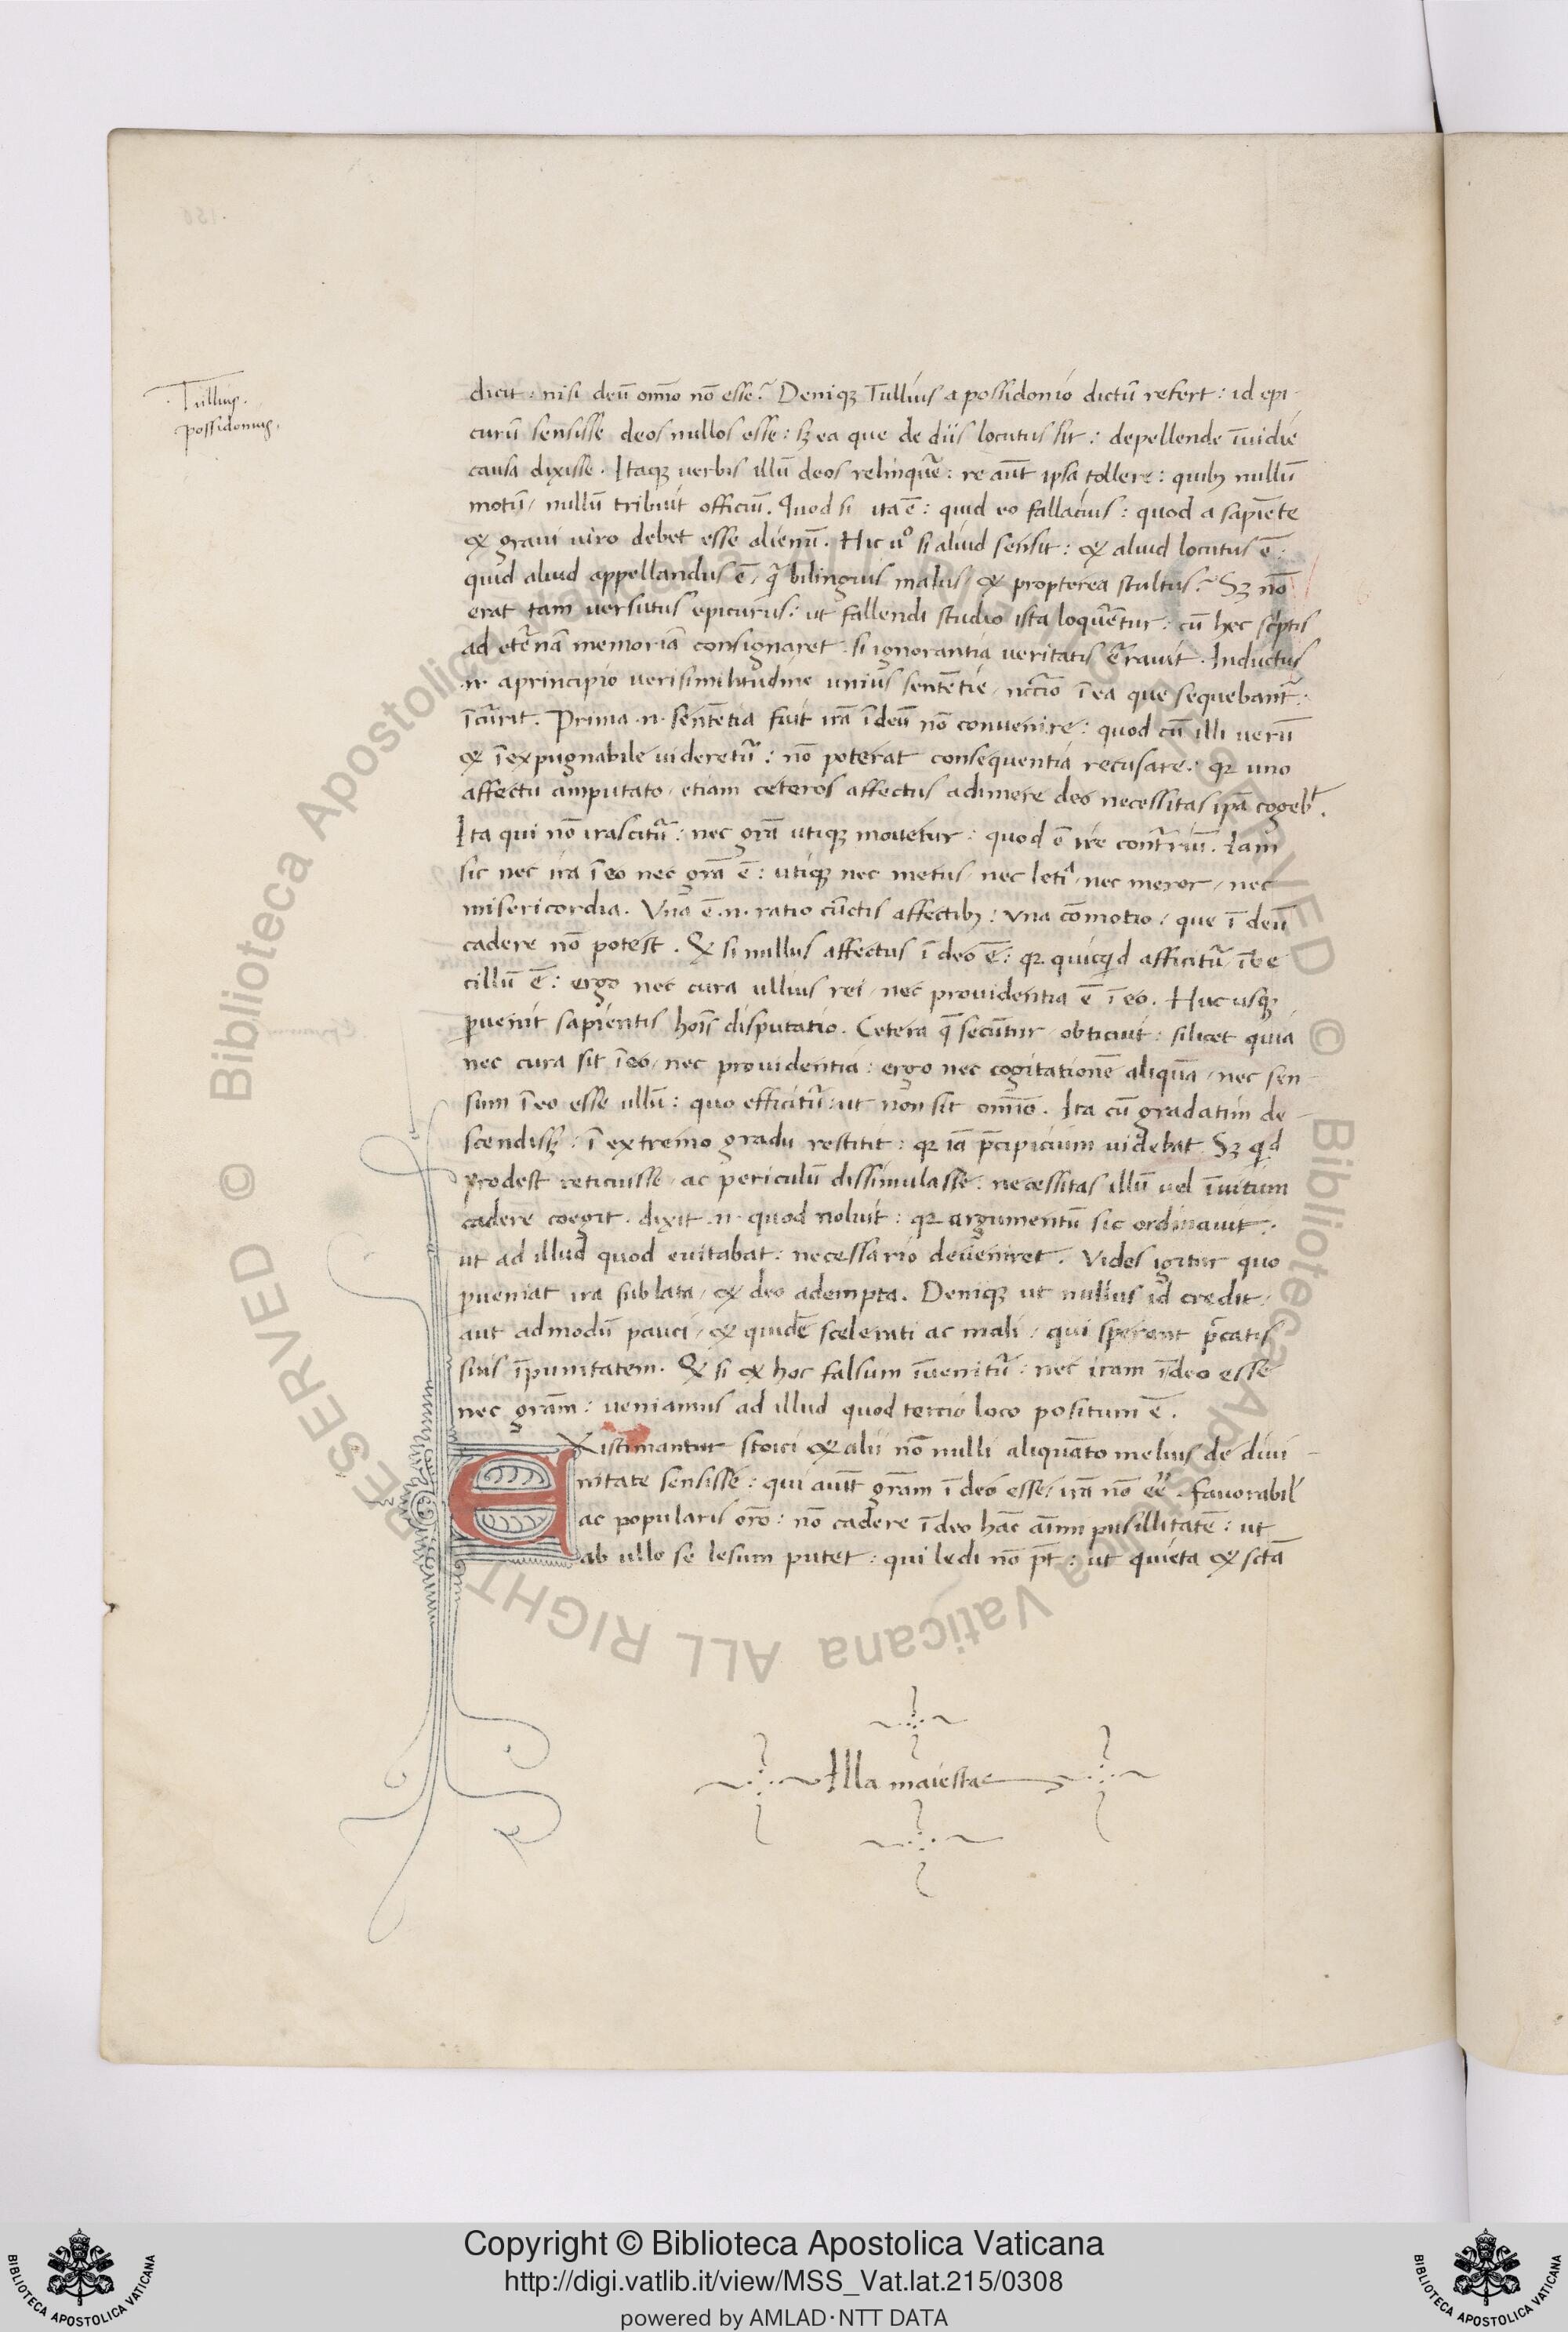 Tullius.
possidonius.
dicit: nisi deū omīo nō esse? Deniqꝫ Tullius a possidonio dictū refert: id epi-
curū sensisse deos nullos esse: sꝫ ea que de diis locutus sit: depellende īuidie
causa dixisse. Itaqꝫ verbis illū deos relinqu̔e: re aūt ipsa tollere: quibꝫ nullū
motū, nullū tribuit officiū. Quod si ita ē: quid eo fallacius: quod a sapiēte
& graui uiro debet esse alienū. Hic uͦ si aliud sensit: & aliud locutus ē:
quid aliud appellandus ē, q̄ bilinguis malus, & propterea stultus? Sꝫ nō
erat tam versutus epicurus: ut fallendi studio ista loqu̔etur: cū hec sc̔ptis
ad et̔nā memoriā consignaret. si ignorantia veritatis errauit. Inductus
.n. a principio verisimilitudine unius sentētie, nc̄cio ī ea que sequebant̔:
īcurrit. Prima .n. sentētia fuit irā ī deū nō convenire: quod cū illi verū
& īexpugnabile uideret̔: nō poterat consequentia recusare: qꝛ uno
affectu amputato, etiam ceteros affectus adimere deo necessitas ip̄a cogeb̔t.
Ita qui nō irascit̔: nec gr̄a utiqꝫ mouetur: quod ē ire contr̔iū. Iam
sic nec ira ī eo nec gr̄a ē: utiqꝫ nec metus, nec letiͣ, nec meror, nec
misericordia. Vna ē .n. ratio cūctis affectibꝫ: vna cōmotio, que ī deū
cadere nō potest. & si nullus affectus ī deo ē: qꝛ quicqͥd afficit̔ ībe
cillū ē: ergo nec cura ullius rei, nec prouidentia ē ī eo. Huc usqꝫ
ꝑuenit sapientis hoīs disputatio. Cetera q̄ secūtur, obticuit: silicet quia
nec cura sit ī eo, nec prouidentia: ergo nec cogitationē aliquā, nec sen-
sum ī eo esse ullū: quo efficit̔: ut non sit omīo. Ita cū gradatim de-
scendissꝫ: ī extremo gradu restitit: qꝛ iā p̄cipicium uidebat. Sꝫ qͥd
prodest reticuisse, ac periculū dissimulasse. necessitas illū uel īuitum
cadere coegit. dixit .n. quod noluit: qꝛ argumentū sic ordinauit:
ut ad illud quod euitabat: necessario deueniret. Vides igitur quo
ꝑueniat ira sublata, & deo adempta. Deniqꝫ ut nullius id credit,
aut admodū pauci, & quidē scelerati ac mali, qui sperant p̄catis
suis īpunitatem. & si & hoc falsum īuenit̔: nec iram ī deo esse
nec gr̄am: ueniamus ad illud quod tercio loco positum ē.
EXistimantur stoici & alii nō nulli aliquāto melius de diui-
nitate sensisse: qui aiūt gr̄am ī deo esse, irā nō ee̅. fauorabil̔
ac popularis oro̅: nō cadere ī deo hāc aīmi pusillitatē: ut
ab ullo se lesum putet: qui ledi nō pt̄: ut quieta & sctā
Illa maiestas
Copyright © Biblioteca Apostolica Vaticana
http://digi.vatlib.it/view/MSS_Vat.lat.215/0308
powered by AMLAD·NTT DATA